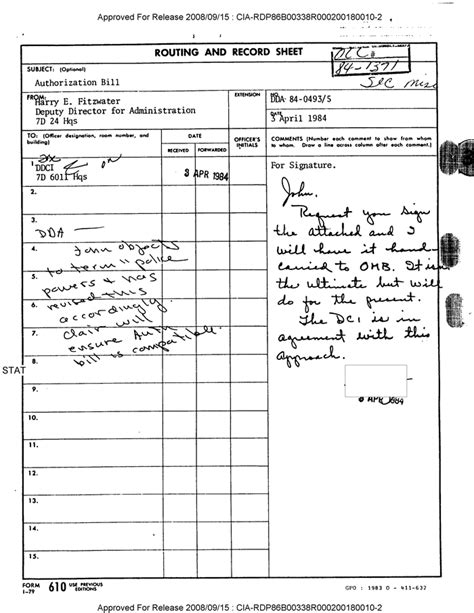 Approved For Release 2008/09/15 : CIA-RDP86B00338R000200180010-2
ROUTING AND RECORD SHEET
84-1371
SUBJECT: (Optional)
Authorization Bill
FROM:
Harry E. Fitzwater
Deputy Director for Administration
7D 24 Hqs
EXTENSION
NO.
DDA 84-0493/5
DATE
3 April 1984
TO: (Officer designation, room number, and building)
DATE
RECEIVED
FORWARDED
OFFICER'S INITIALS
COMMENTS (Number each comment to show from whom to whom. Draw a line across column after each comment.)
1.
DDCI
7D 6011 Hqs
3 APR 1984
For Signature.
2.
John,
Request you sign
the attached and I
will have it hand
carried to OMB. It isn
the ultimate but will
do for the present.
The DCI is in
agreement with this
approach.
6 APR 1984
3.
DDA —
4.
John objects
to term "police
5.
powers & has
revised this
6.
accordingly.
Clair will
7.
ensure Auth
bill is compatible.
8.
STAT
9.
10.
11.
12.
13.
14.
15.
FORM 1-79
610
USE PREVIOUS EDITIONS
GPO : 1983 O - 411-632
Approved For Release 2008/09/15 : CIA-RDP86B00338R000200180010-2